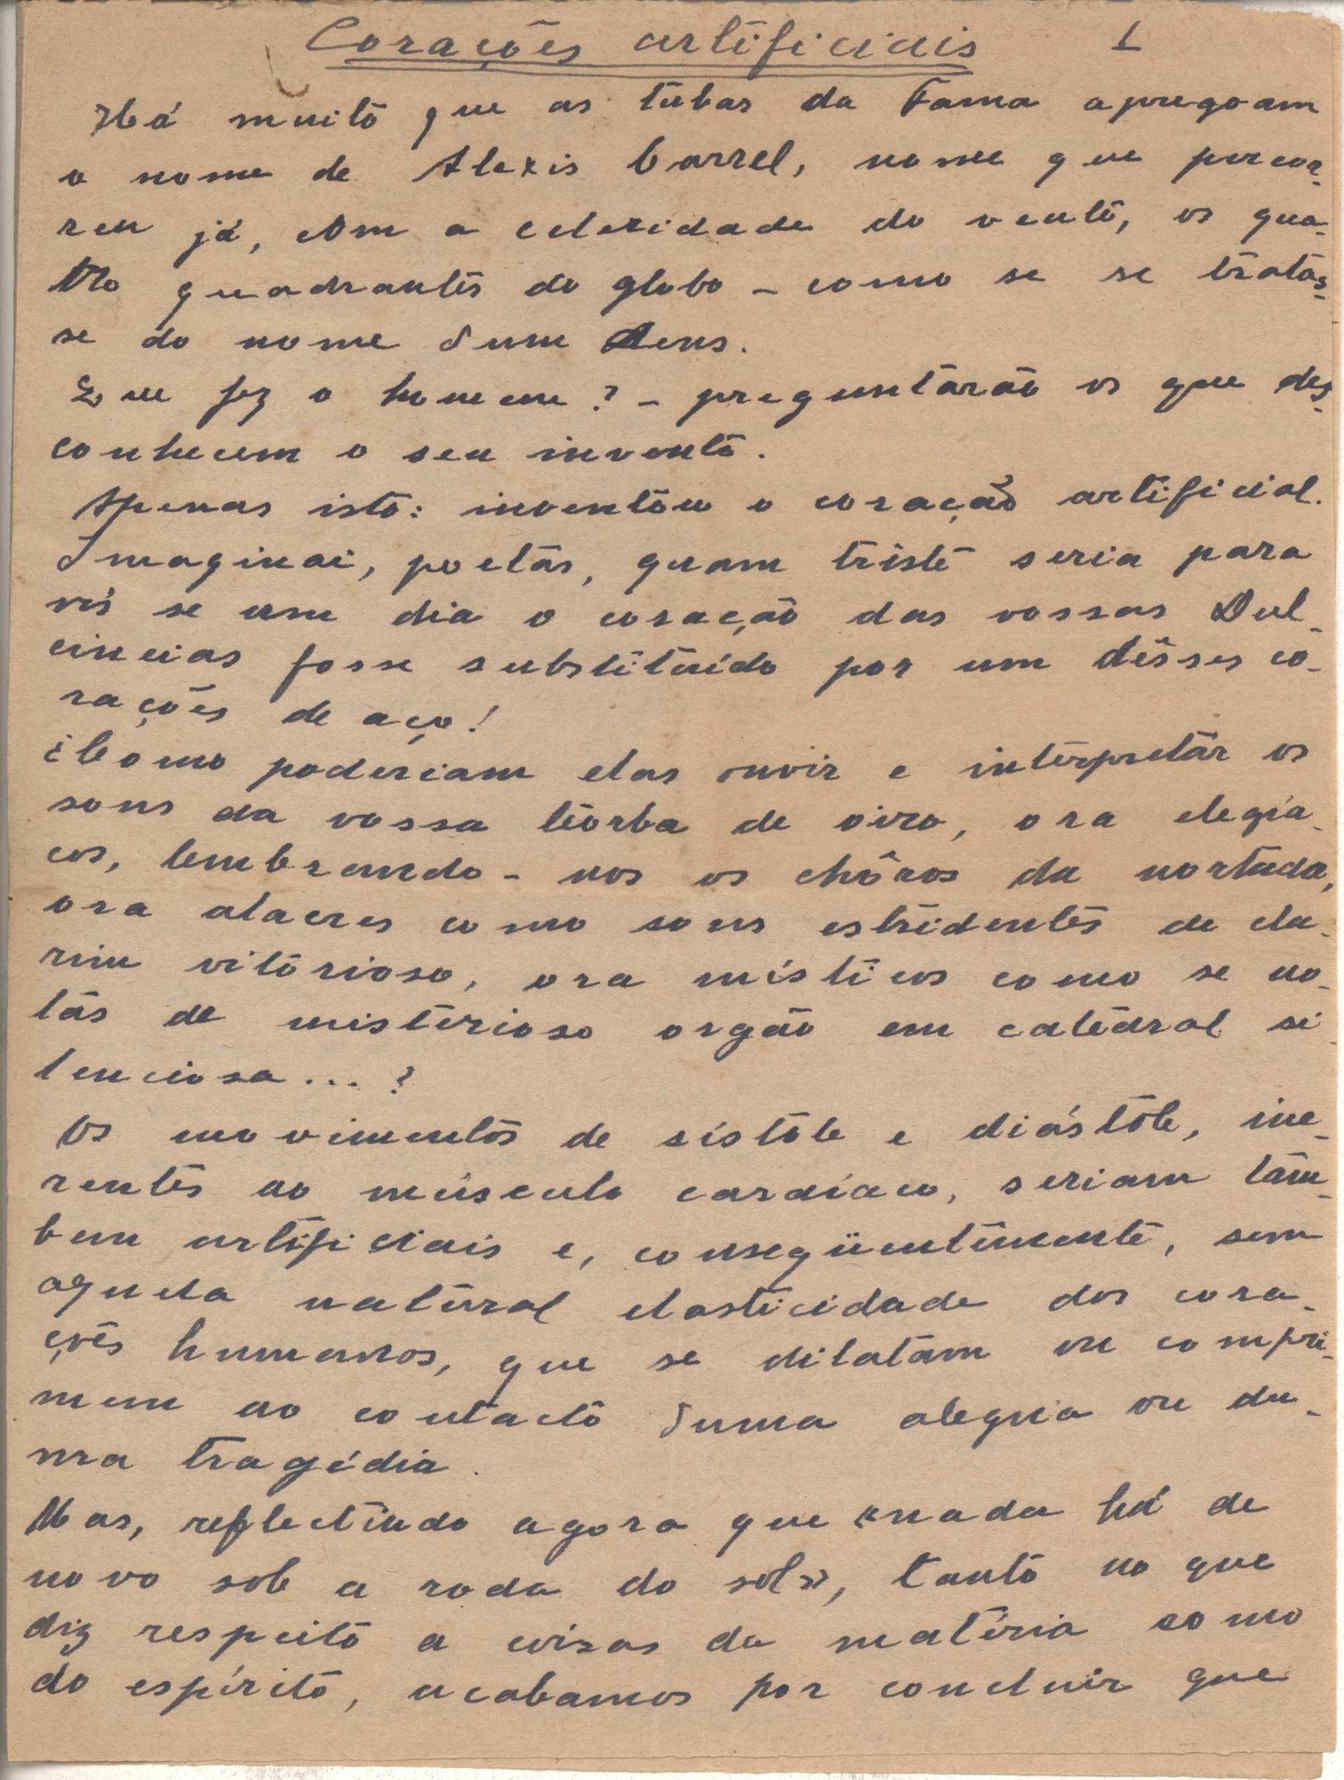 Corações artificiais 1
Há muito que as tubas da Fama apregoam
o nome de Alexis Carrel, nome que percor-
reu já, com a celeridade do vento, os qua-
tro quadrantes do globo - como se se tratas-
se do nome dum deus.
Que fez o homem? - preguntarão os que des-
conhecem o seu invento.
Apenas isto: inventou o coração artificial.
Imaginai, poetas, quam triste seria para
vós se um dia o coração das vossas Dul-
cineias fosse substituído por um dêsses co-
rações de aço!
¿Como poderiam elas ouvir e interpretar os
sons da vossa teorba de oiro, ora elegía-
cos, lembrando-nos os chôros da nortada,
ora alacres como sons estridentes de cla-
rim vitorioso, ora místicos como se no-
tas de misterioso orgão em catedral si-
lenciosa...?
Os movimentos de sístole e diástole, ine-
rentes ao músculo cardíaco, seriam tam-
bem artificiais e, conseqüentemente, sem
aquela natural elasticidade dos cora-
ções humanos, que se dilatam ou compri-
mem ao contacto duma alegria ou du-
ma tragédia.
Mas, reflectindo agora que «nada há de
novo sob a roda do sol», tanto no que
diz respeito a coisas da matéria como
do espírito, acabamos por concluir que